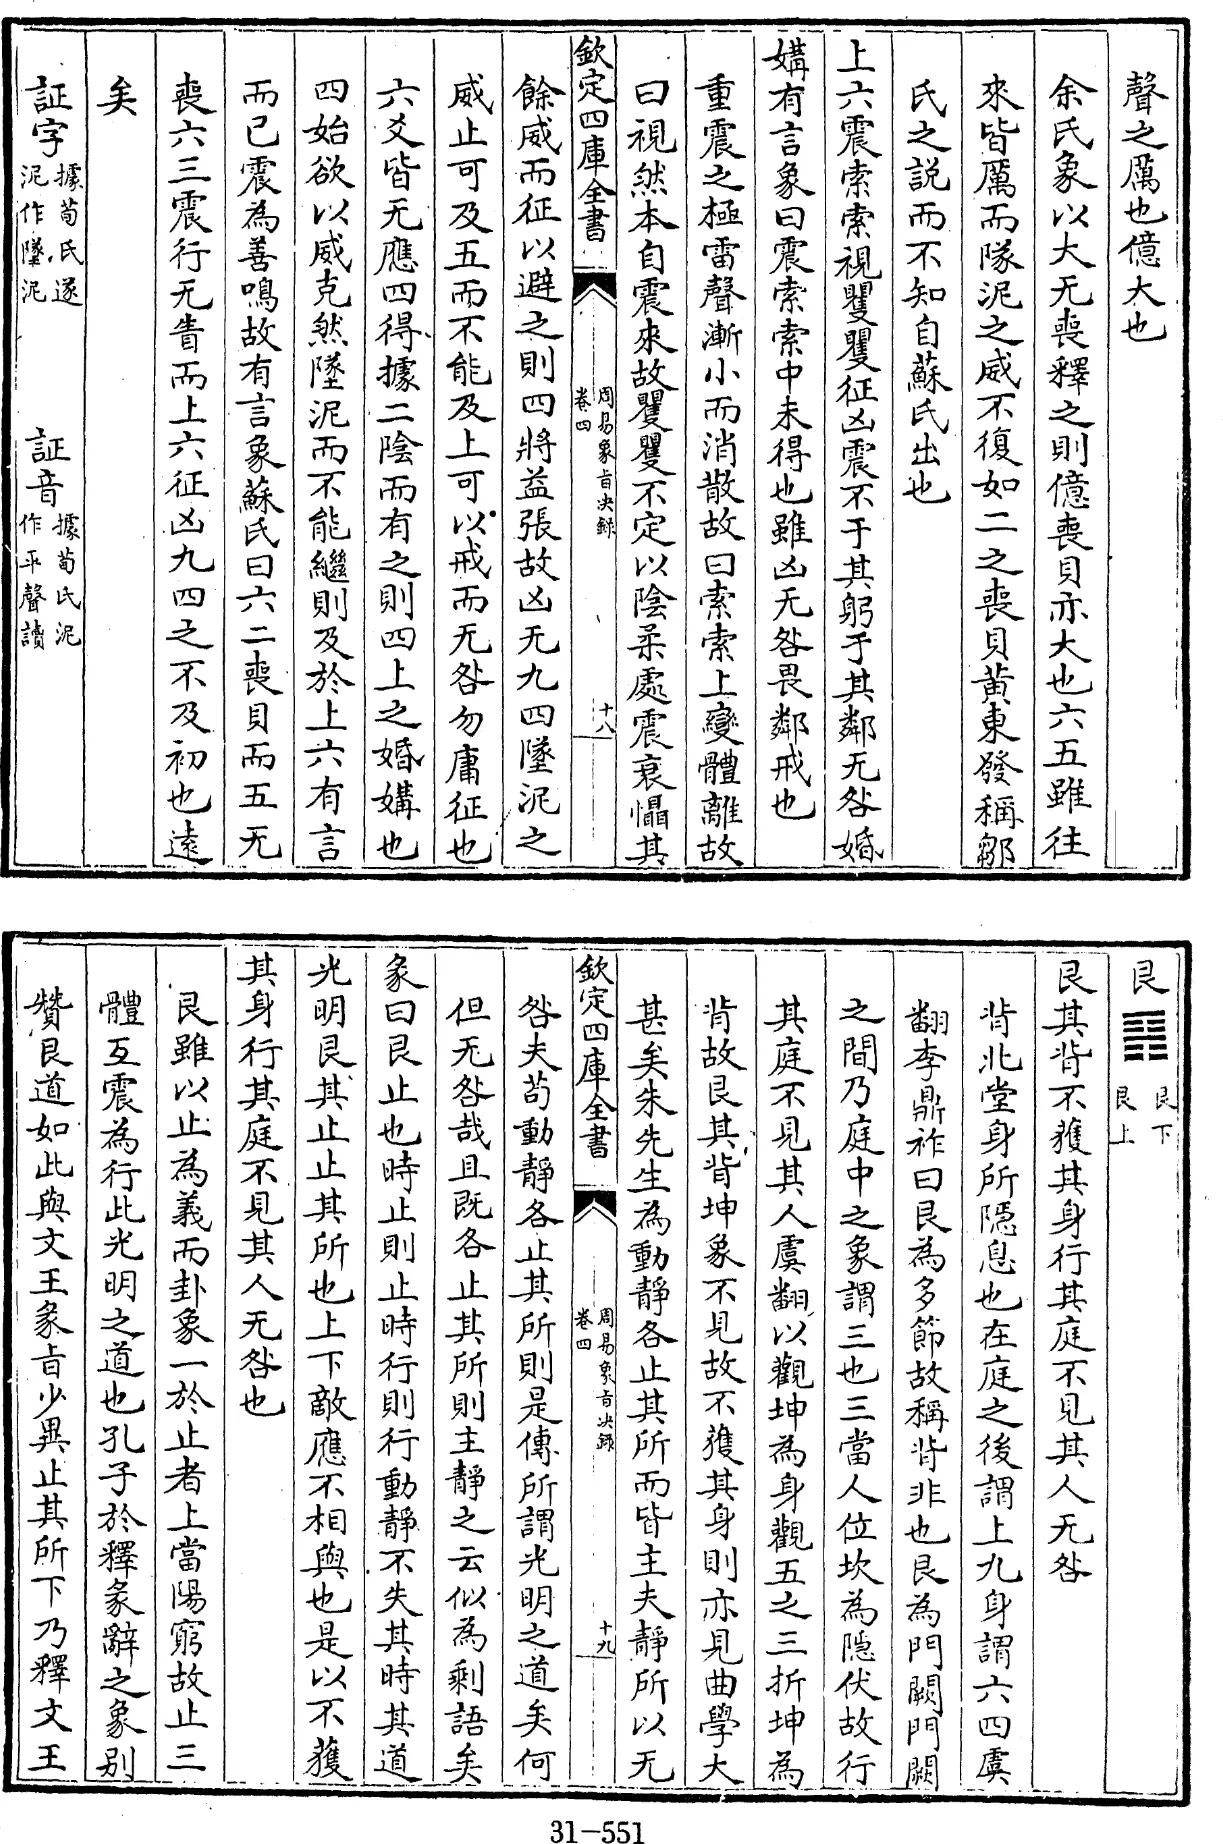 聲之厲也億大也
余氏象以大无喪釋之則億喪貝亦大也六五雖往
來皆厲而隊泥之威不復如二之喪貝黃東發稱鄒
氏之説而不知自蘇氏出也
上六震索索視矍矍征凶震不于其躬于其鄰无咎婚
媾有言象曰震索索中未得也雖凶无咎畏鄰戒也
重震之極雷聲漸小而消散故曰索索上變體離故
曰視然本自震來故矍矍不定以陰柔處震衰懾其
欽定四庫全書
周易象旨决錄
卷四
十八
餘威而征以避之則四將益張故凶无九四墜泥之
威止可及五而不能及上可以戒而无咎勿庸征也
六爻皆无應四得據二陰而有之則四上之婚媾也
四始欲以威克然墜泥而不能繼則及於上六有言
而已震為善鳴故有言象蘇氏曰六二喪貝而五无
喪六三震行无眚而上六征凶九四之不及初也遠
矣
証字 據荀氏遂
泥作墜泥
証音 據荀氏泥
作平聲讀
艮 ䷳ 艮下
艮上
艮其背不獲其身行其庭不見其人无咎
背北堂身所隱息也在庭之後謂上九身謂六四虞
翻李鼎祚曰艮為多節故稱背非也艮為門闕門闕
之間乃庭中之象謂三也三當人位坎為隱伏故行
其庭不見其人虞翻以觀坤為身觀五之三折坤為
背故艮其背坤象不見故不獲其身則亦見曲學大
甚矣朱先生為動靜各止其所而皆主夫靜所以无
欽定四庫全書
周易象旨决錄
卷四
十九
咎夫苟動靜各止其所則是傳所謂光明之道矣何
但无咎哉且既各止其所則主靜之云似為剩語矣
彖曰艮止也時止則止時行則行動靜不失其時其道
光明艮其止止其所也上下敵應不相與也是以不獲
其身行其庭不見其人无咎也
艮雖以止為義而卦象一於止者上當陽窮故止三
體互震為行此光明之道也孔子於釋彖辭之象別
贊艮道如此與文王彖旨少異止其所下乃釋文王
31-551